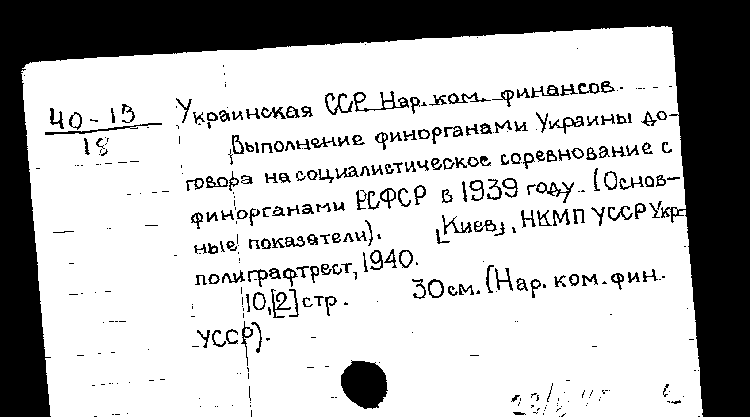 40-13
18
Украинская ССР. Нар. ком. финансов.
Выполнение финорганами Украины до-
говора на социалистическое соревнование с
финорганами РСФСР в 1939 году. (Основ-
ные показатели). [Киев], НКМП УССР Укр-
полиграфтрест, 1940.
10,[2] стр. 30 см. (Нар. ком. фин.
УССР).